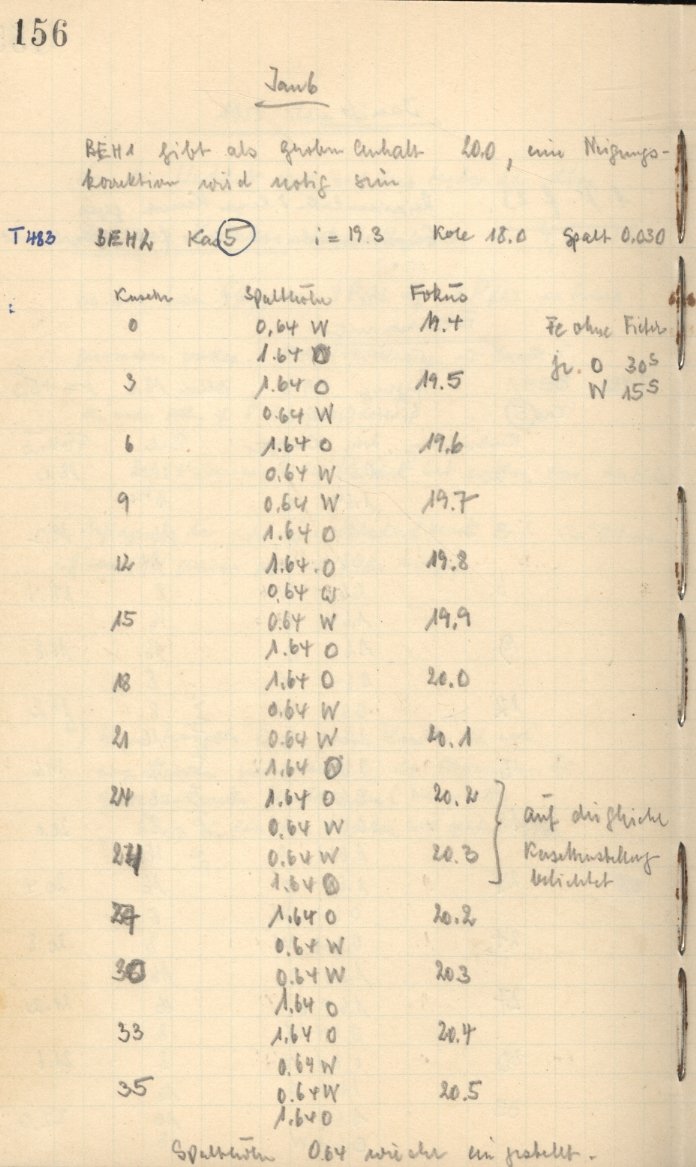 156
Jaub
BEH1 gibt als groben Anhalt 20.0, eine Neigungs-
korrektion wird nötig sein
T483 BEH2 Ka 5 i = 19.3 Kole 18.0 Spalt 0.030
Kasette Spalthöhe Fokus
0 0,64 W 19.4 Fe ohne Filter
1.64 O
3 1.64 O 19.5 O 30s
0.64 W W 15s
6 1.64 O 19.6
0.64 W
9 0,64 W 19.7
1.64 O
12 1.64.O 19.8
0.64 W
15 0.64 W 19,9
1.64 O
18 1.64 O 20.0
0.64 W
21 0.64 W 20.1
1.64 O
24 1.64 O 20.2 auf die gleiche
0.64 W
0.64 W 20.3 Kasettenstellung
1.64 O belichtet
1.64 O 20.2
0.64 W
30 0.64 W 20.3
1.64 O
33 1.64 O 20.4
0.64 W
35 0.64 W 20.5
1.64 O
Spalthöhe 0.64 wieder eingestellt.